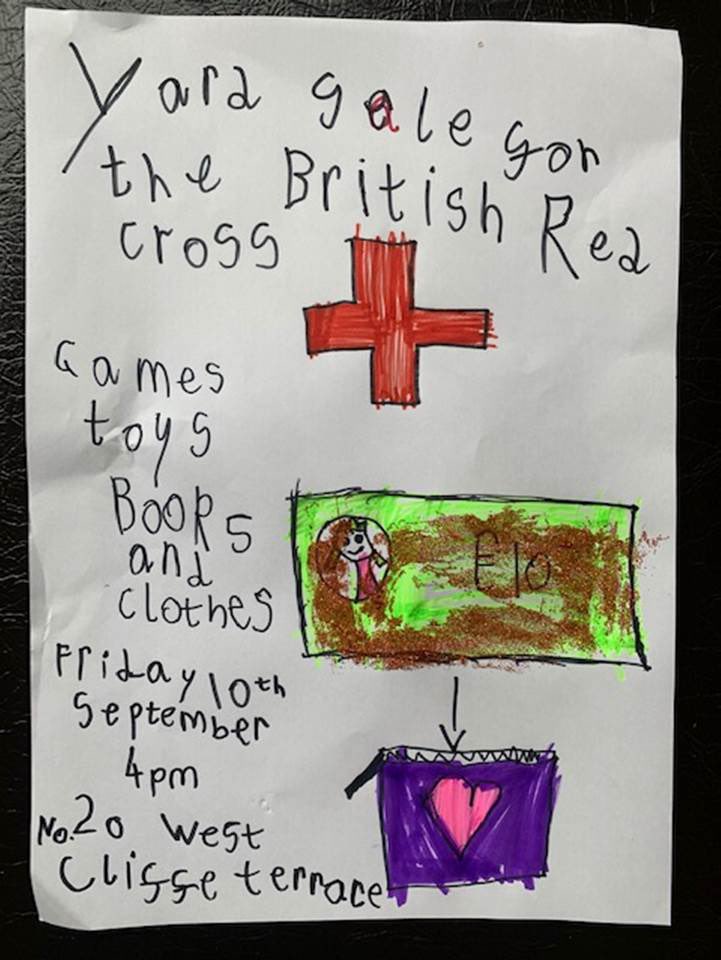 Yard sale for
the British Red
cross
Games
toys
Books
and
clothes
£10
Friday 10th
September
4pm
No.20 West
Cliffe terrace